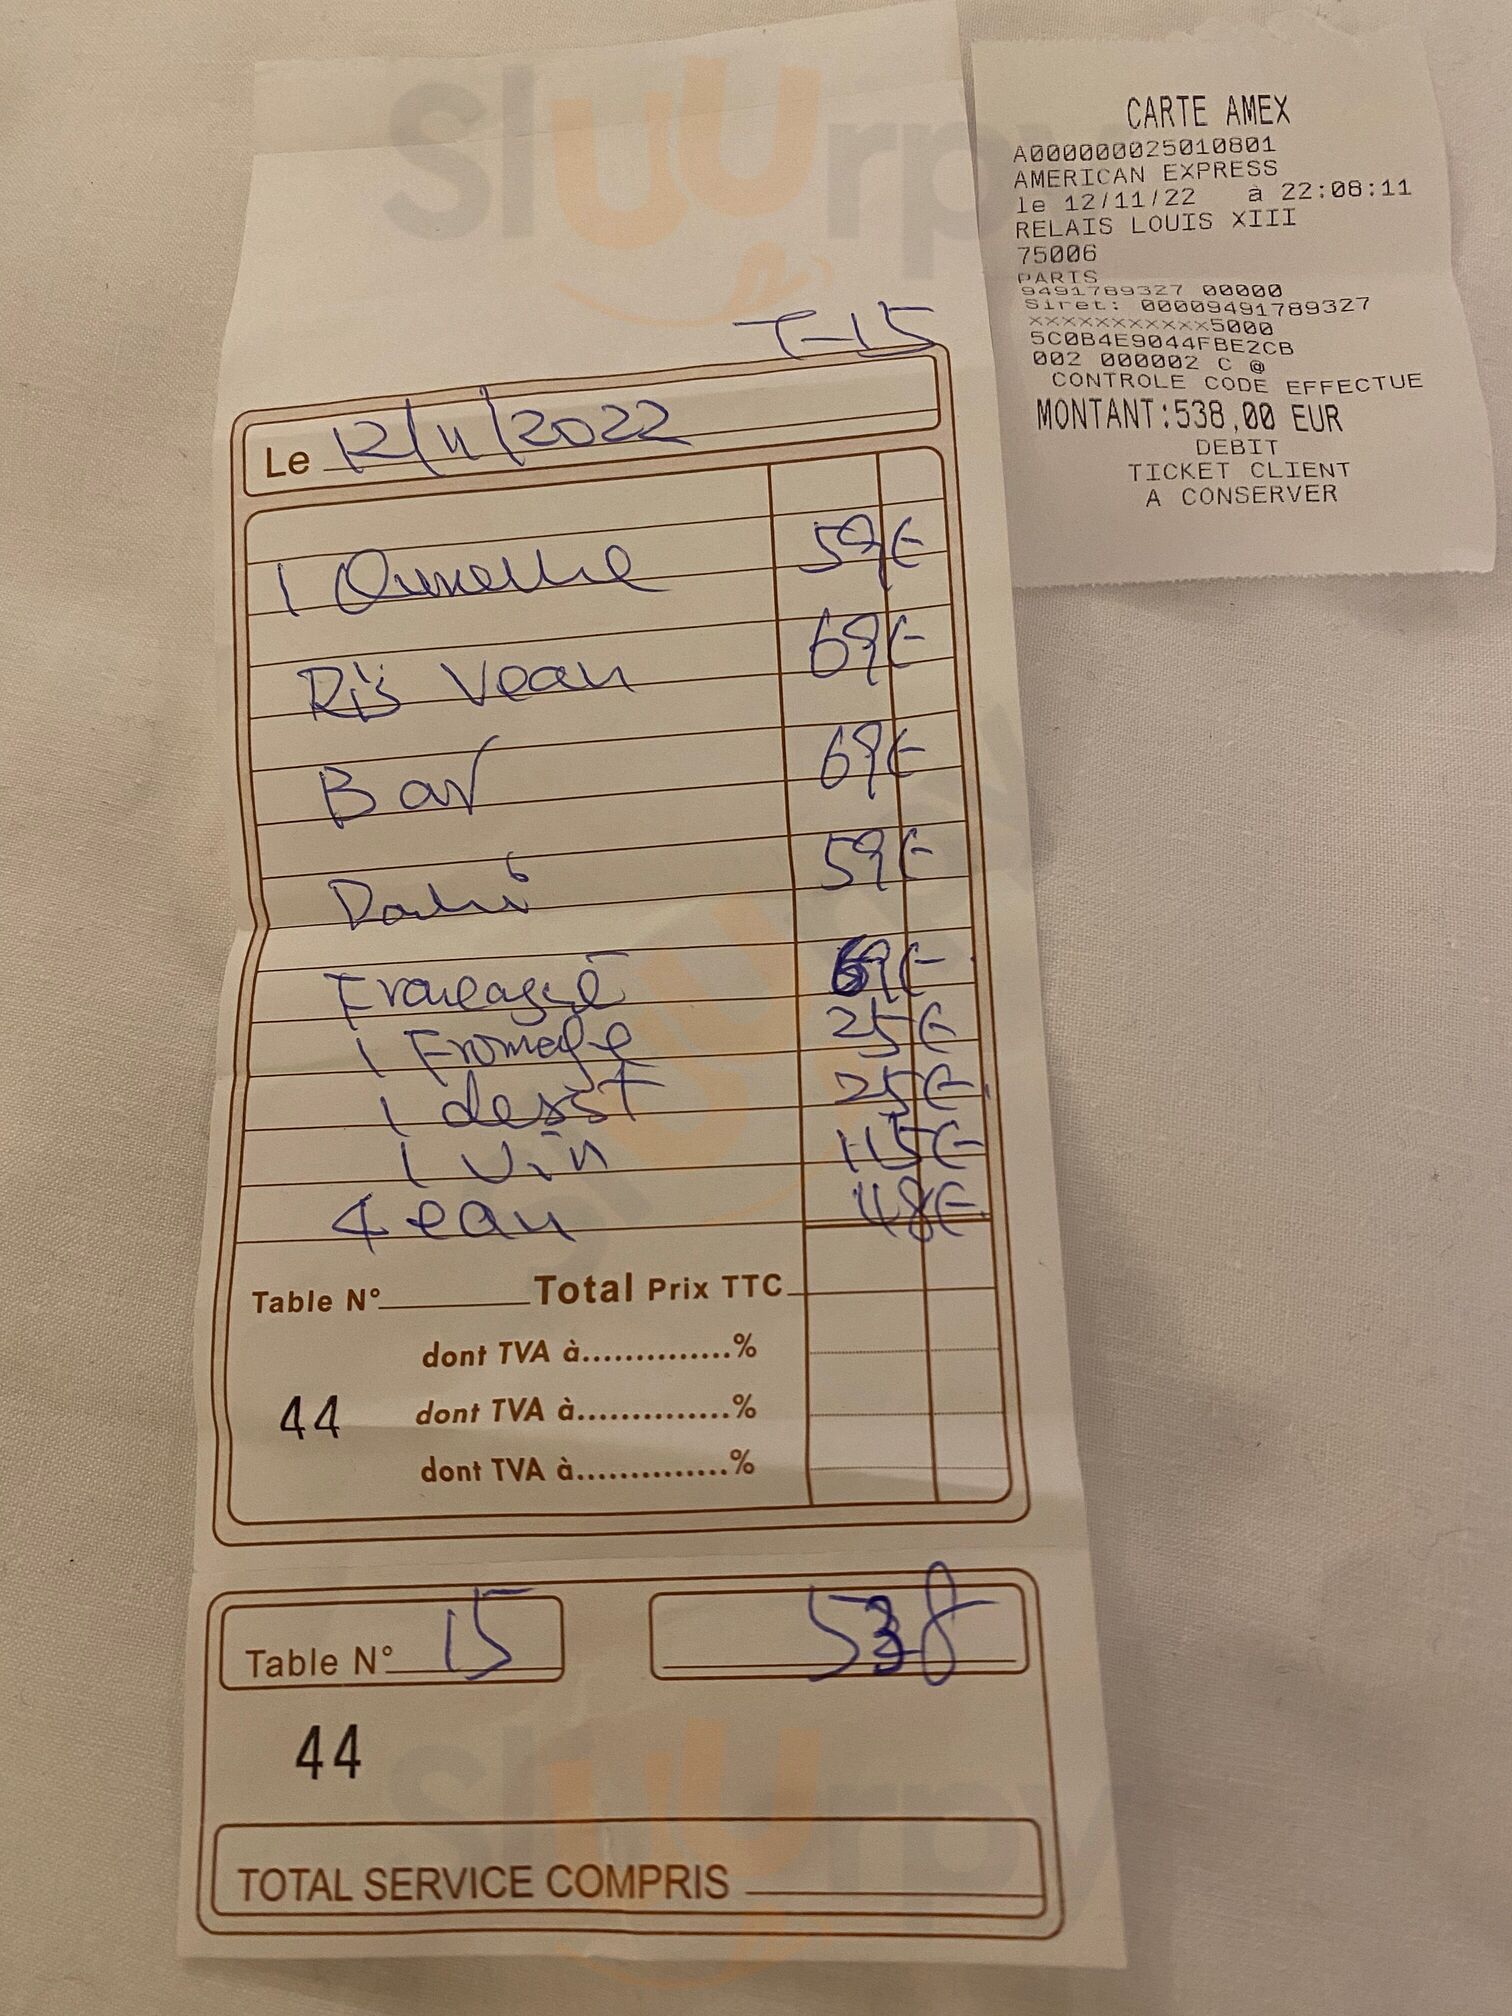 Sluurpy
T-15
Le 12/11/2022
1 59€
Ris Veau 69€
Bar 69€
59€
69€
1 Fromage 25€
1 desst 25€
1 Vin 115€
4 eau 48€
Table N° Total Prix TTC
dont TVA à..............%
44 dont TVA à..............%
dont TVA à..............%
Table N° 15 538
44
TOTAL SERVICE COMPRIS
CARTE AMEX
A0000000025010801
AMERICAN EXPRESS
le 12/11/22 à 22:08:11
RELAIS LOUIS XIII
75006
PARIS
9491789327 00000
Siret: 00009491789327
xxxxxxxxxxx5000
5C0B4E9044FBE2CB
002 000002 C @
CONTROLE CODE EFFECTUE
MONTANT:538,00 EUR
DEBIT
TICKET CLIENT
A CONSERVER
Sluurpy
Sluurpy